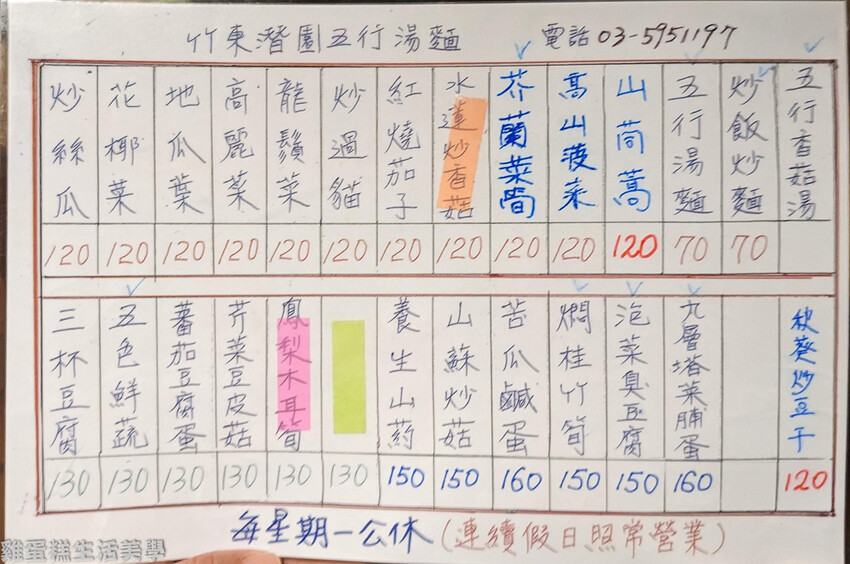 竹東潛園五行湯麵 電話 03-5951197
五行香菇湯
炒飯炒麵
70
五行湯麵
70
山茼蒿
120
高山菠菜
120
芥蘭菜
120
水蓮炒香菇
120
紅燒茄子
120
炒過貓
120
龍鬚菜
120
高麗菜
120
地瓜葉
120
花椰菜
120
炒絲瓜
120
秋葵炒豆干
120
九層塔菜脯蛋
160
泡菜臭豆腐
150
燜桂竹筍
150
苦瓜鹹蛋
160
山蘇炒菇
150
養生山葯
150
130
鳳梨木耳筍
130
芹菜豆皮菇
130
蕃茄豆腐蛋
130
五色鮮蔬
130
三杯豆腐
130
每星期一公休(連續假日照常營業)
雞蛋糕生活美學